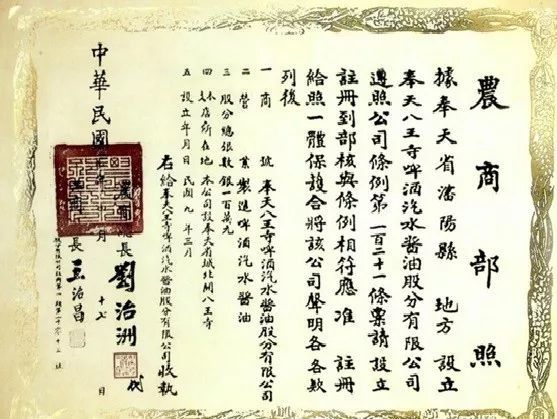 農商部照
據奉天省瀋陽縣 地方 設立
奉天八王寺啤酒汽水醬油股分有限公司
遵照公司條例第一百二十一條稟請設立
註冊到部核與條例相符應准 註冊
給照一體保護合將該公司聲明各各欵
列後
一 商 號 奉天八王寺啤酒汽水醬油股分有限公司
二 營 業 製造啤酒汽水醬油
三 股分總張數 銀一百萬元
四 本店所在地 本公司設奉天省城北關八王寺
五 設立年月日 民國九年三月
右給奉天八王寺啤酒汽水醬油股分有限公司收執
農商總長 劉治洲 代
長 王治昌
中華民國 年 月 十七 日